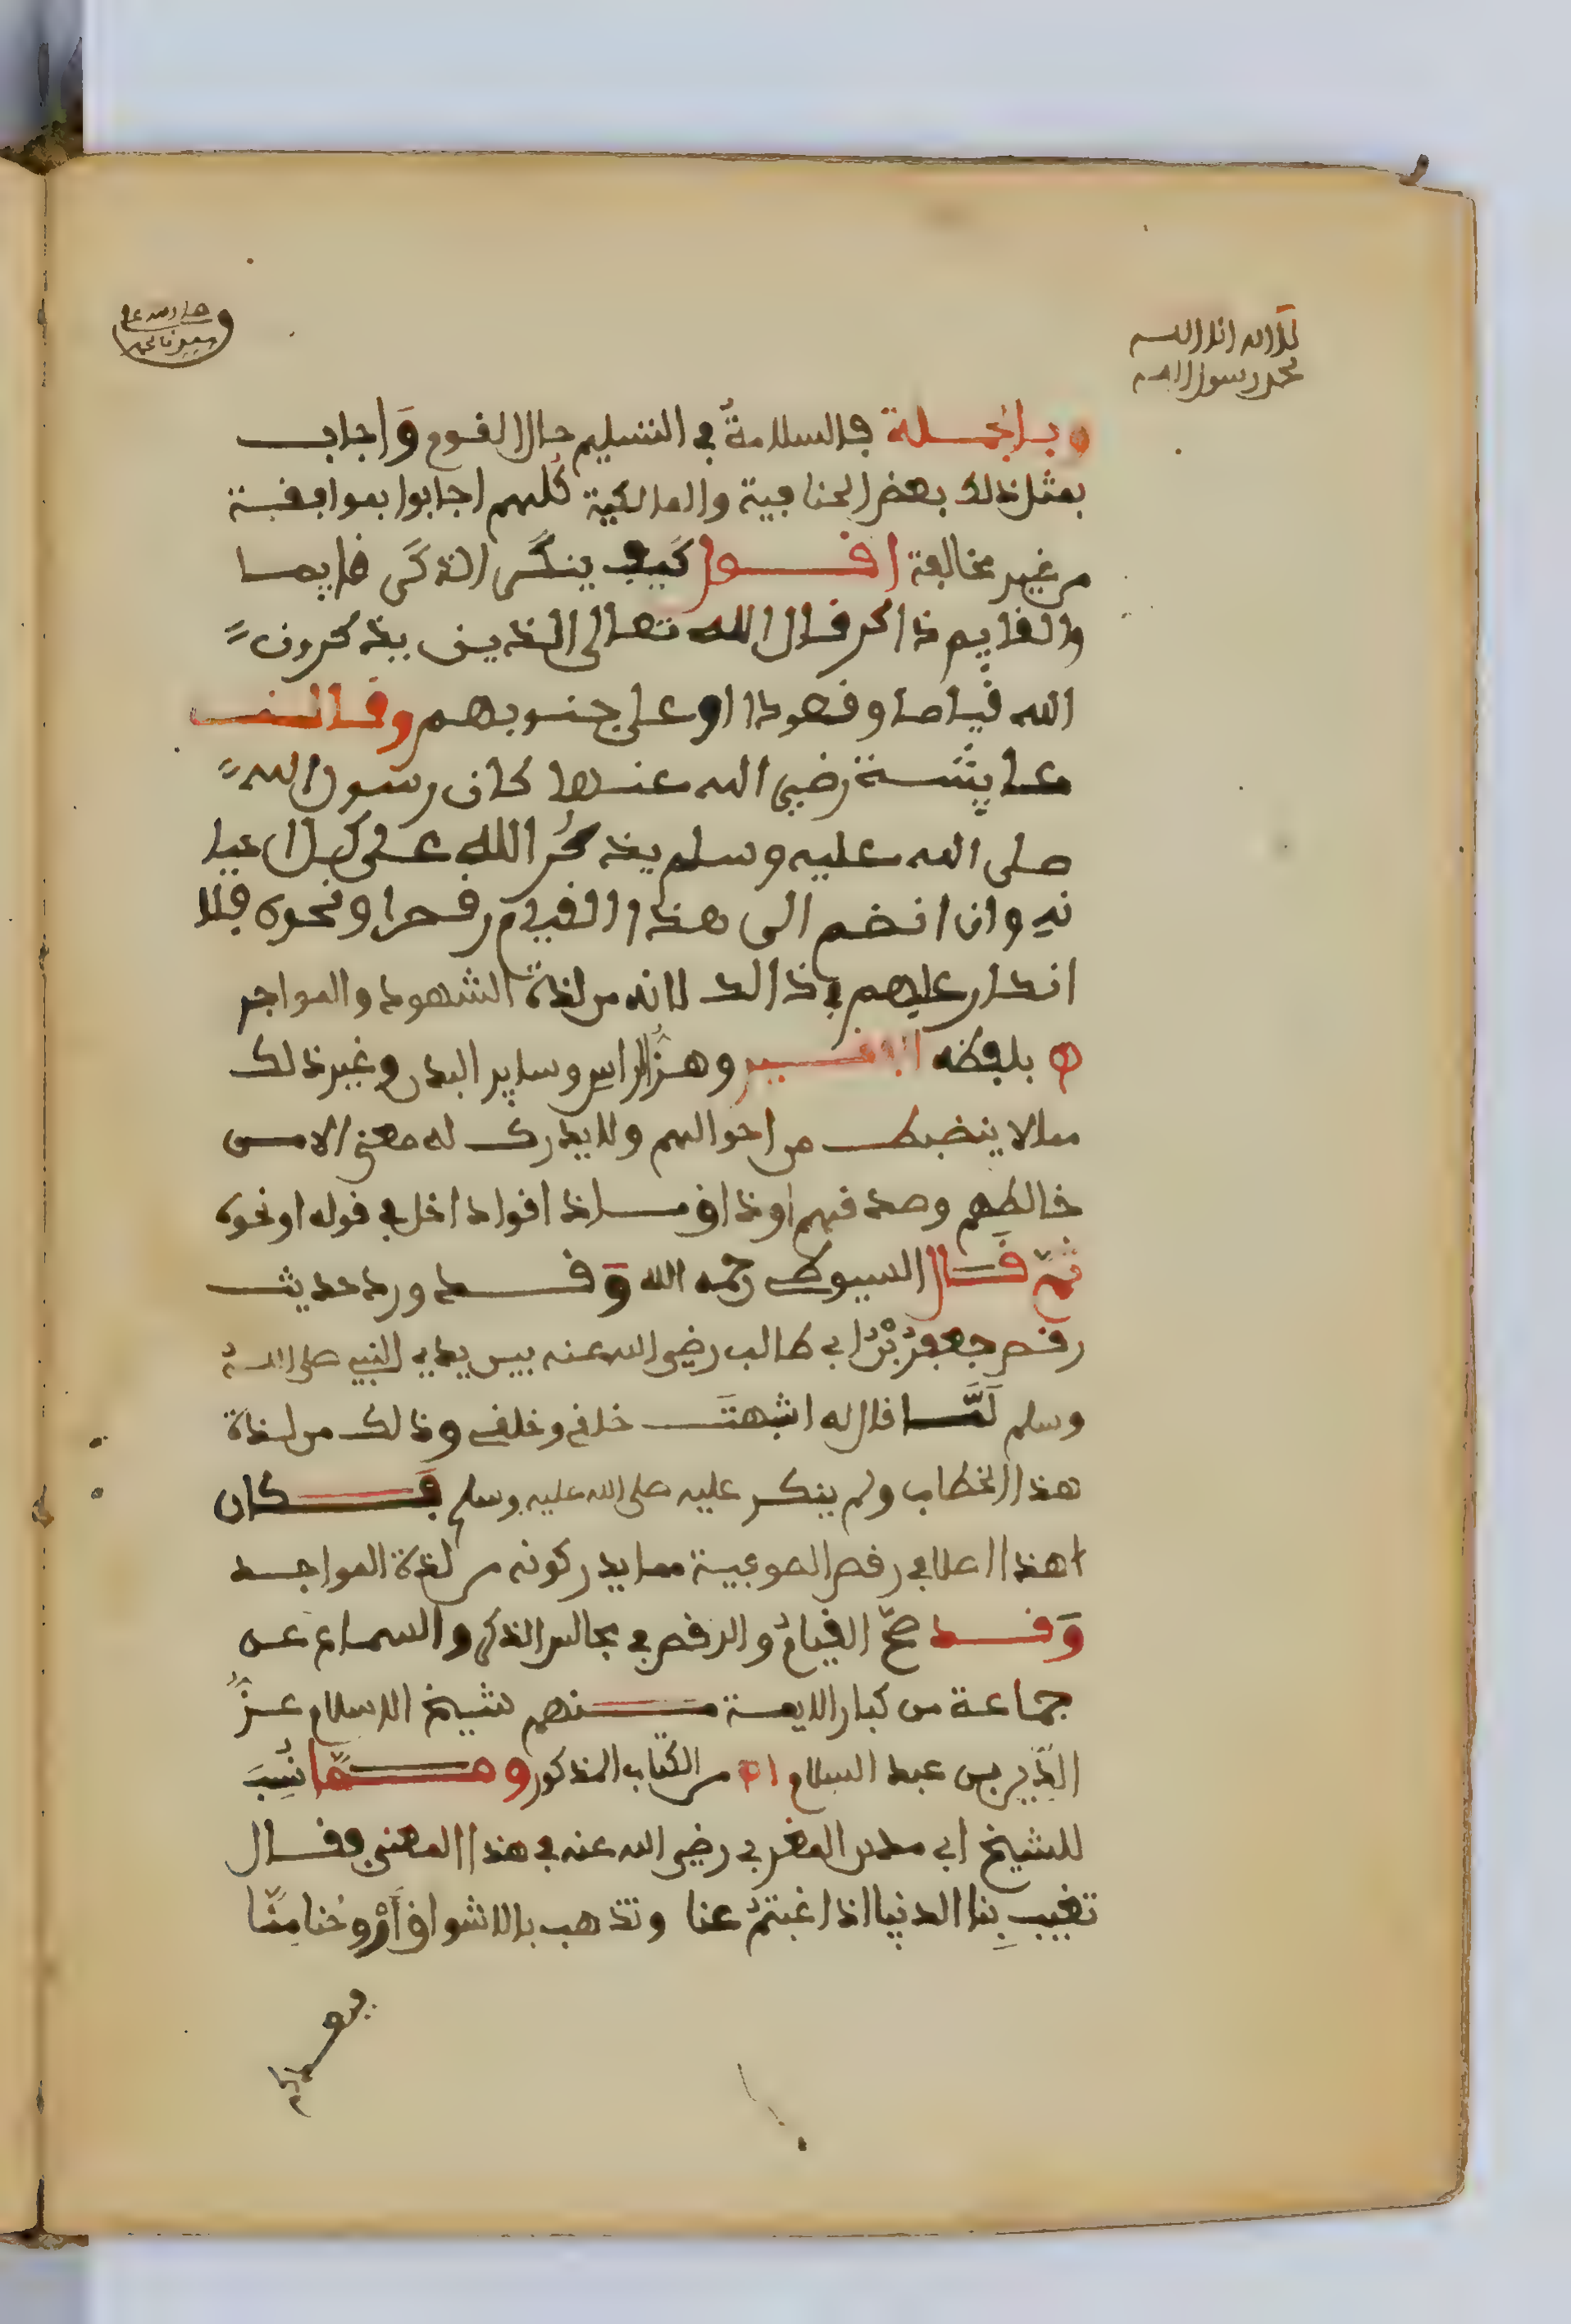 لا اله الا الله
محمد رسول الله
وبالجملة فالسلامةُ في التسليم حال القوم وَاجاب
بمثل ذلك بعض الحنافية والمالكية كُلهم اجابوا بموافقة
من غير مخالفة افول كيف ينكر الذكر قايما
والقايم ذاكر قال الله تعالى الذين يذكرون
الله قياما وقعودا او على جنوبهم وقالت
عايشة رضي الله عنها كان رسول الله
صلى الله عليه وسلم يذكُر الله على كل احيا
نه وان انضم الى هذا القيام رقصا ونحوه فلا
انكار عليهم في ذالك لانه من لذة الشهود والمواجد
اه بلفظه وهزُّ الراس وساير البدن وغير ذلك
مما لا ينضبط من احوالهم ولا يدرك له معنى الا من
خالطهم وصدقهم او ذاق مذاقا داخل في قوله او نحوه
ثمّ قَال السيوطي رحمه الله وَقد ورد حديث
رقص جعفرُ بْنُ ابي طالب رضي الله عنه بين يدي النبي صلى الله
وسلم لَمَّا قال له اشبهتَ خلقي وخلقي وذالك من لذة
هذا الخطاب ولم ينكر عليه صلى الله عليه وسلم فَكان
هذا اصلا في رقص الصوفية مما يدركونه من لذة المواجد
وَقد صحّ القيامُ والرقص في مجالس الذكر والسماع عن
جماعة من كبار الايمة منهم شيخ الاسلام عزُّ
الدّين بن عبد السلام اه من الكتاب المذكور وممّا نُسِبَ
للشيخ ابي مدين المغربي رضي الله عنه في هذا المعنى فقال
تغيب بِنا الدنيا اذا غبتمُ عنا وتذهب بالاشواق أرْوحُنا مِنَّا